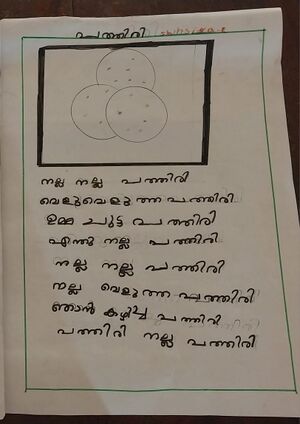 പത്തിരി
നല്ല നല്ല പത്തിരി
വെളുവെളുത്ത പത്തിരി
ഉമ്മ ചുട്ട പത്തിരി
എന്തു നല്ല പത്തിരി
നല്ല നല്ല പത്തിരി
നല്ല വെളുത്ത പത്തിരി
ഞാൻ കഴിച്ച പത്തിരി
പത്തിരി നല്ല പത്തിരി